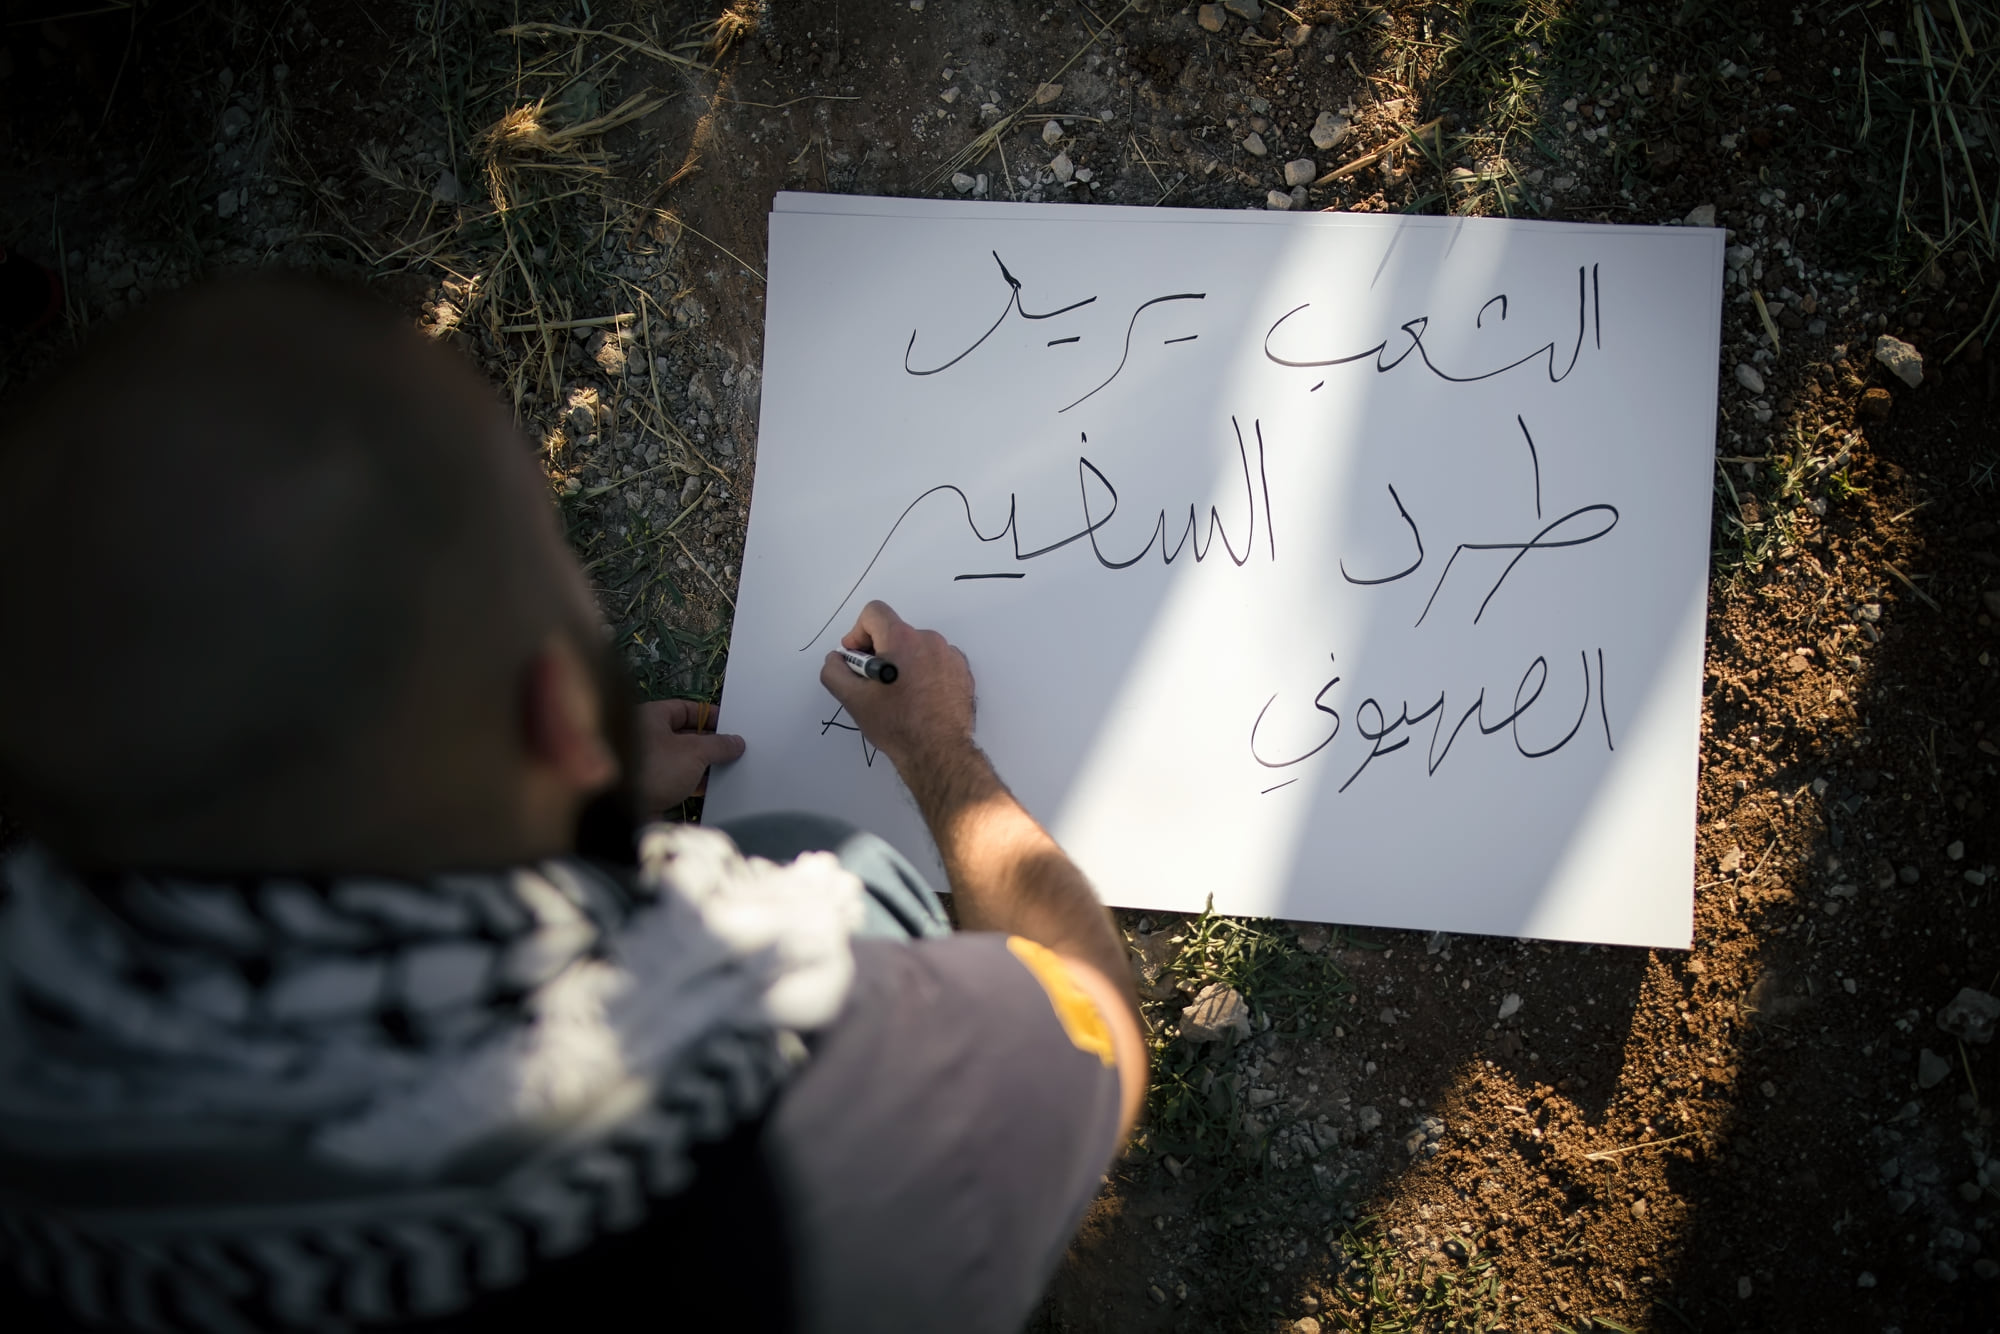 الشعب يريد
طرد السفير
الصهيوني